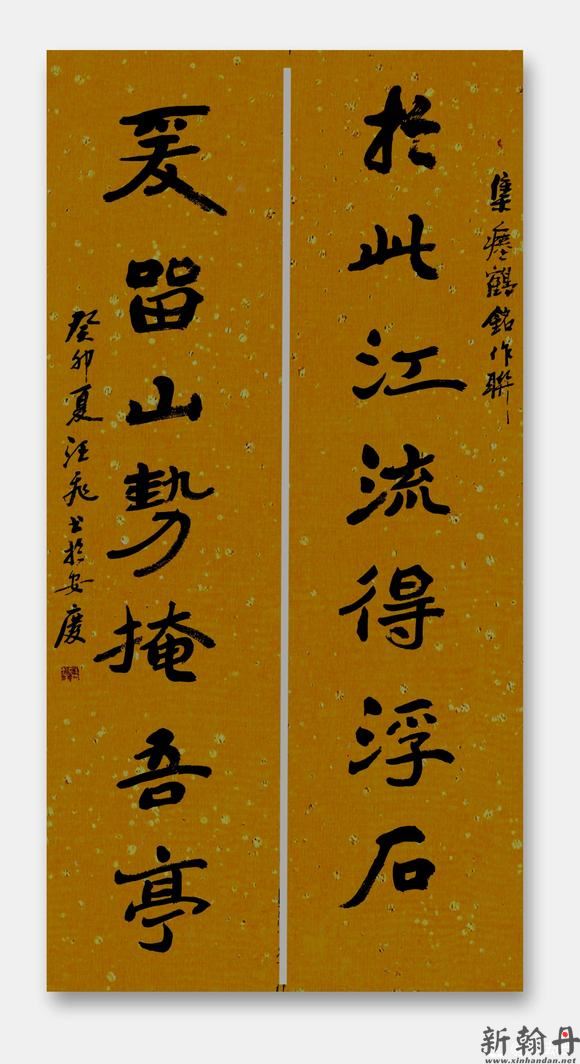 集瘗鶴銘作聯
於此江流得浮石
爰留山勢掩吾亭
癸卯夏汪飛书於安慶
新翰丹
www.xinhandan.net